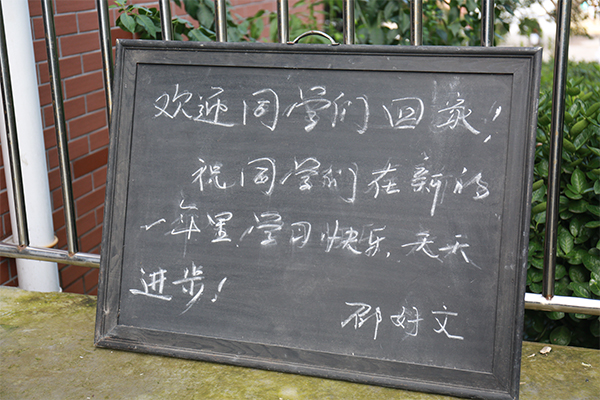 欢迎同学们回家!
祝同学们在新的
一年里,学习快乐,天天
进步!
邵好文